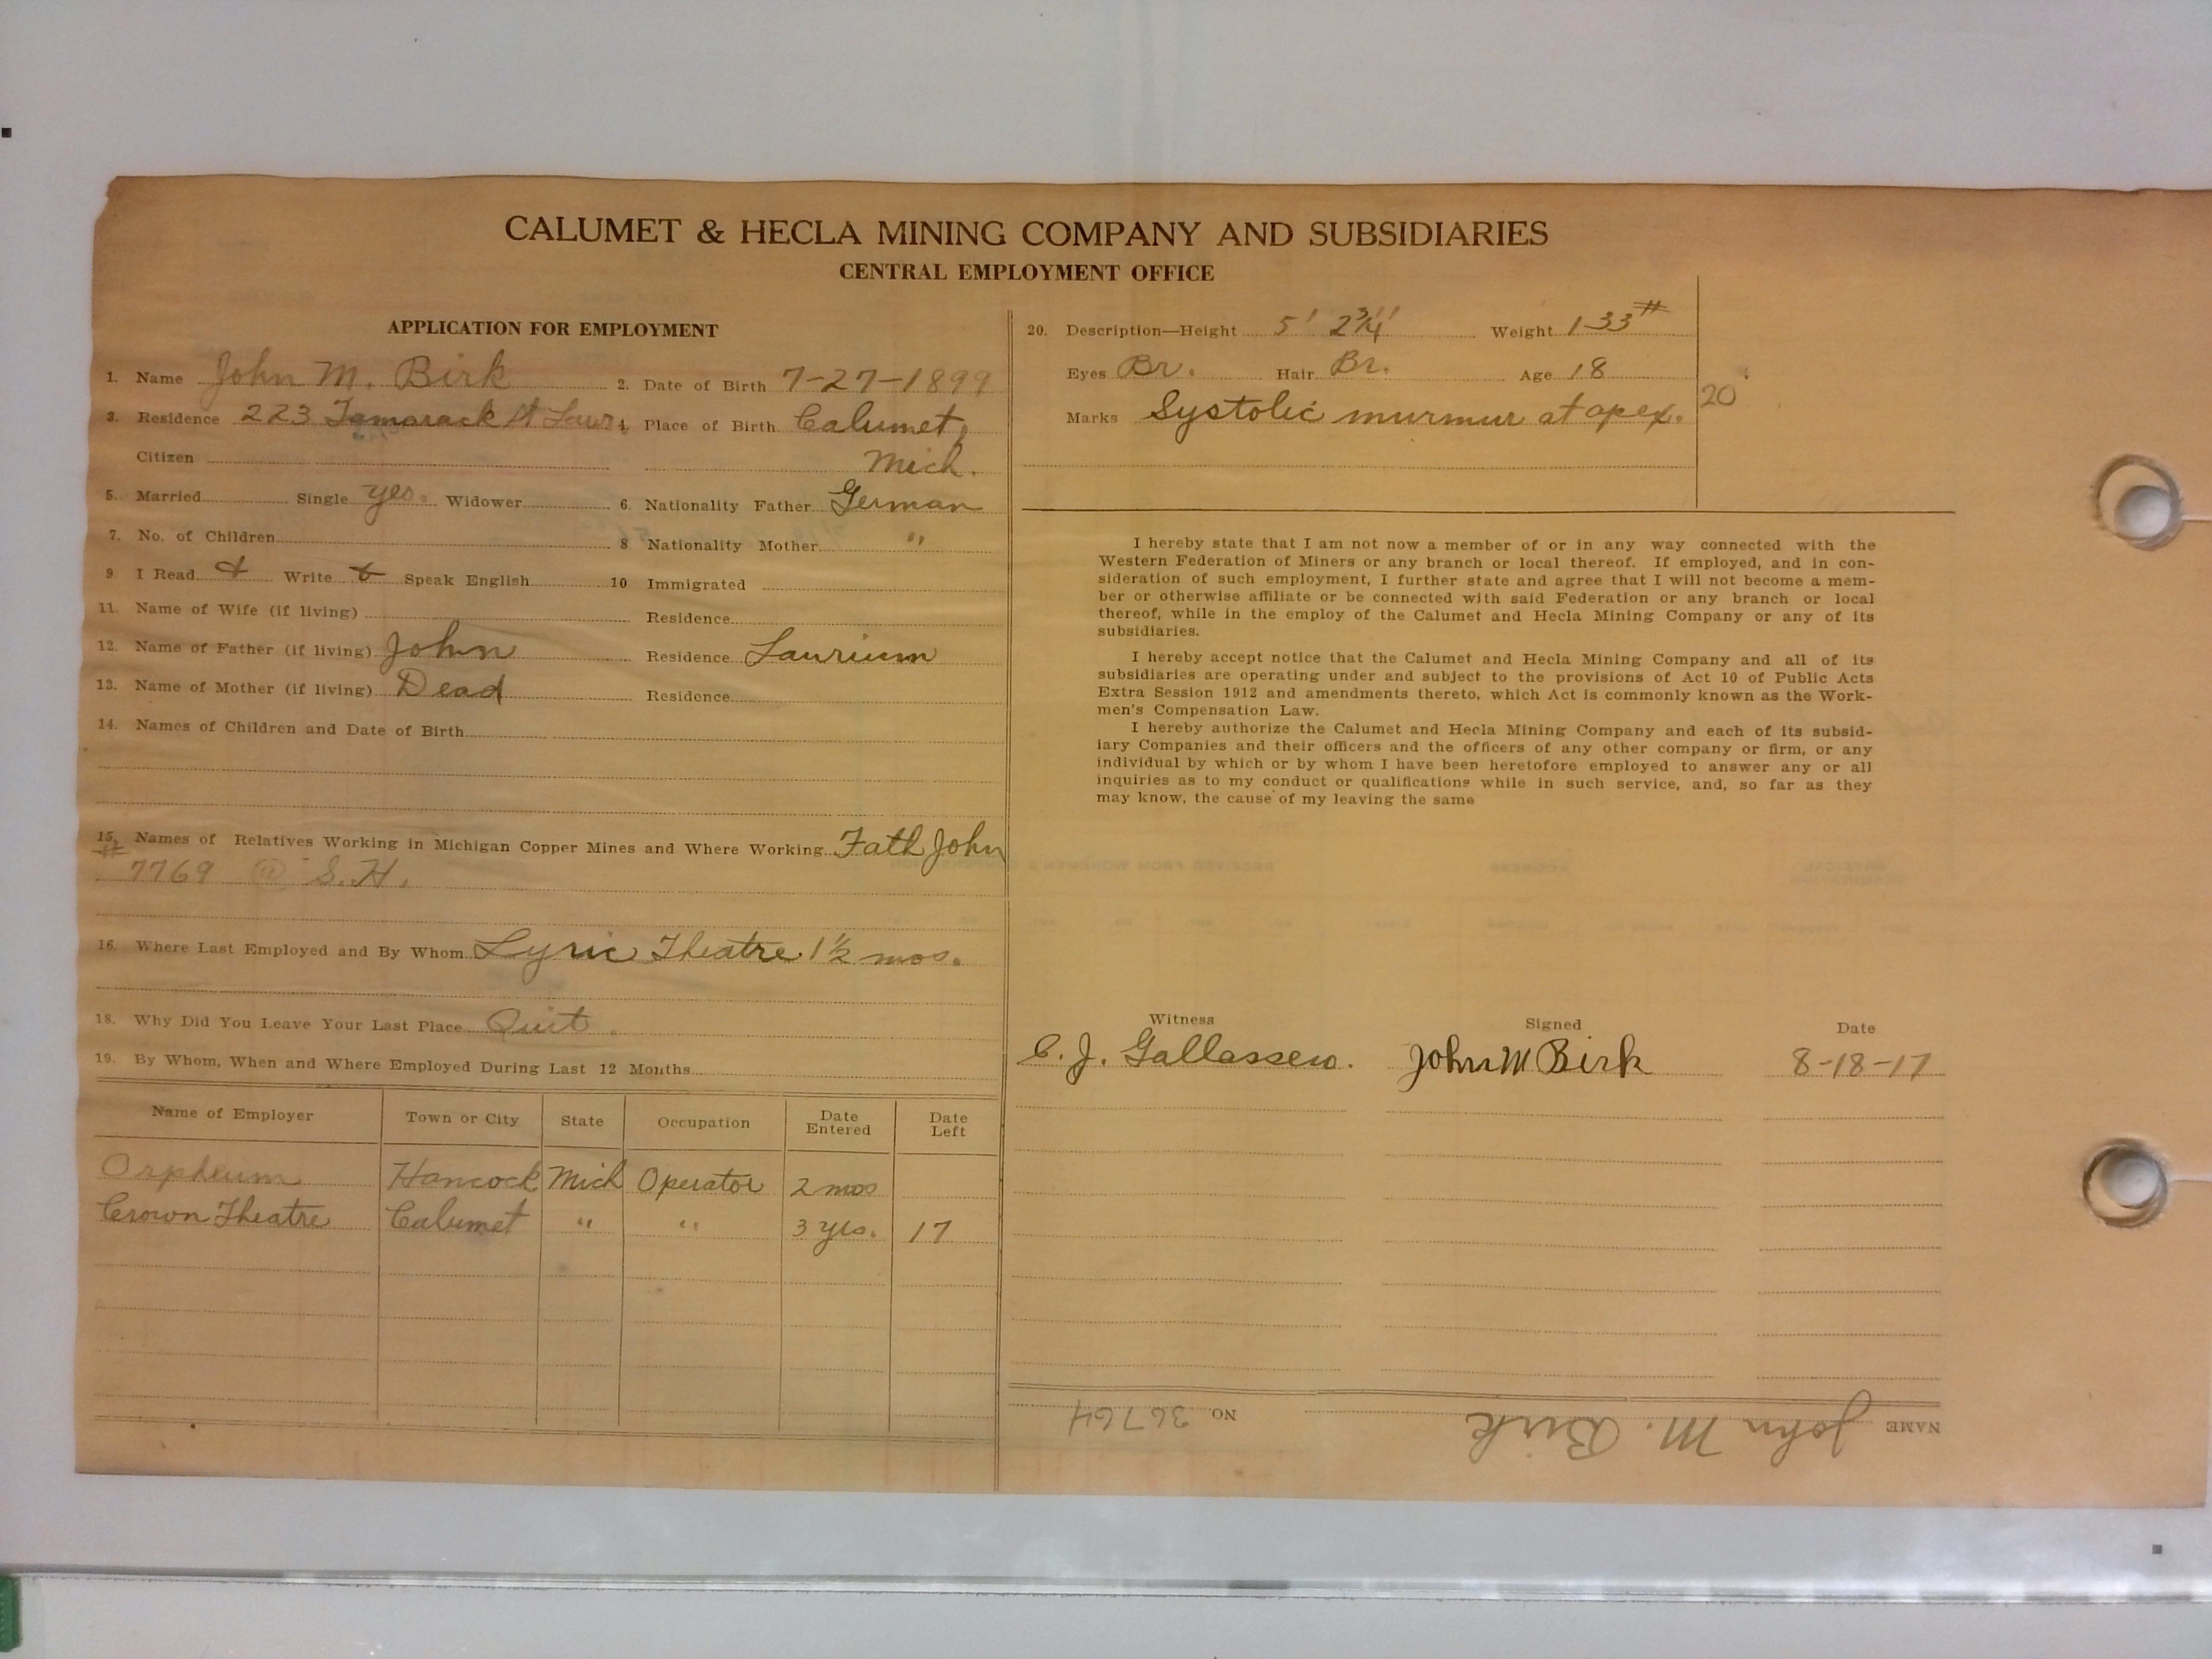 CALUMET & HECLA MINING COMPANY AND SUBSIDIARIES
CENTRAL EMPLOYMENT OFFICE
APPLICATION FOR EMPLOYMENT
1. Name John M. Birk 2. Date of Birth 7-27-1899
3. Residence 223 Tamarack St Laur 4. Place of Birth Calumet,
Citizen Mich.
5. Married Single yes. Widower 6. Nationality Father German
7. No. of Children 8 Nationality Mother "
9. I Read Write Speak English 10 Immigrated
11. Name of Wife (if living) Residence
12. Name of Father (if living) John Residence Laurium
13. Name of Mother (if living) Dead Residence
14. Names of Children and Date of Birth
15. Names of Relatives Working in Michigan Copper Mines and Where Working Fath John
# 7769 @ S.H.
16. Where Last Employed and By Whom Lyric Theatre 1½ mos.
18. Why Did You Leave Your Last Place Quit.
19. By Whom, When and Where Employed During Last 12 Months
Name of Employer Town or City State Occupation Date Entered Date Left
Orpheum Hancock Mich Operator 2 mos
Crown Theatre Calumet " " 3 yrs. 17
20. Description—Height 5' 2¾" Weight 133#
Eyes Br. Hair Br. Age 18
20
Marks Systolic murmur at apex.
I hereby state that I am not now a member of or in any way connected with the
Western Federation of Miners or any branch or local thereof. If employed, and in con-
sideration of such employment, I further state and agree that I will not become a mem-
ber or otherwise affiliate or be connected with said Federation or any branch or local
thereof, while in the employ of the Calumet and Hecla Mining Company or any of its
subsidiaries.
I hereby accept notice that the Calumet and Hecla Mining Company and all of its
subsidiaries are operating under and subject to the provisions of Act 10 of Public Acts
Extra Session 1912 and amendments thereto, which Act is commonly known as the Work-
men's Compensation Law.
I hereby authorize the Calumet and Hecla Mining Company and each of its subsid-
iary Companies and their officers and the officers of any other company or firm, or any
individual by which or by whom I have been heretofore employed to answer any or all
inquiries as to my conduct or qualifications while in such service, and, so far as they
may know, the cause of my leaving the same
Witness Signed Date
C. J. John M Birk 8-18-17
NAME John M. Birk NO. 36764